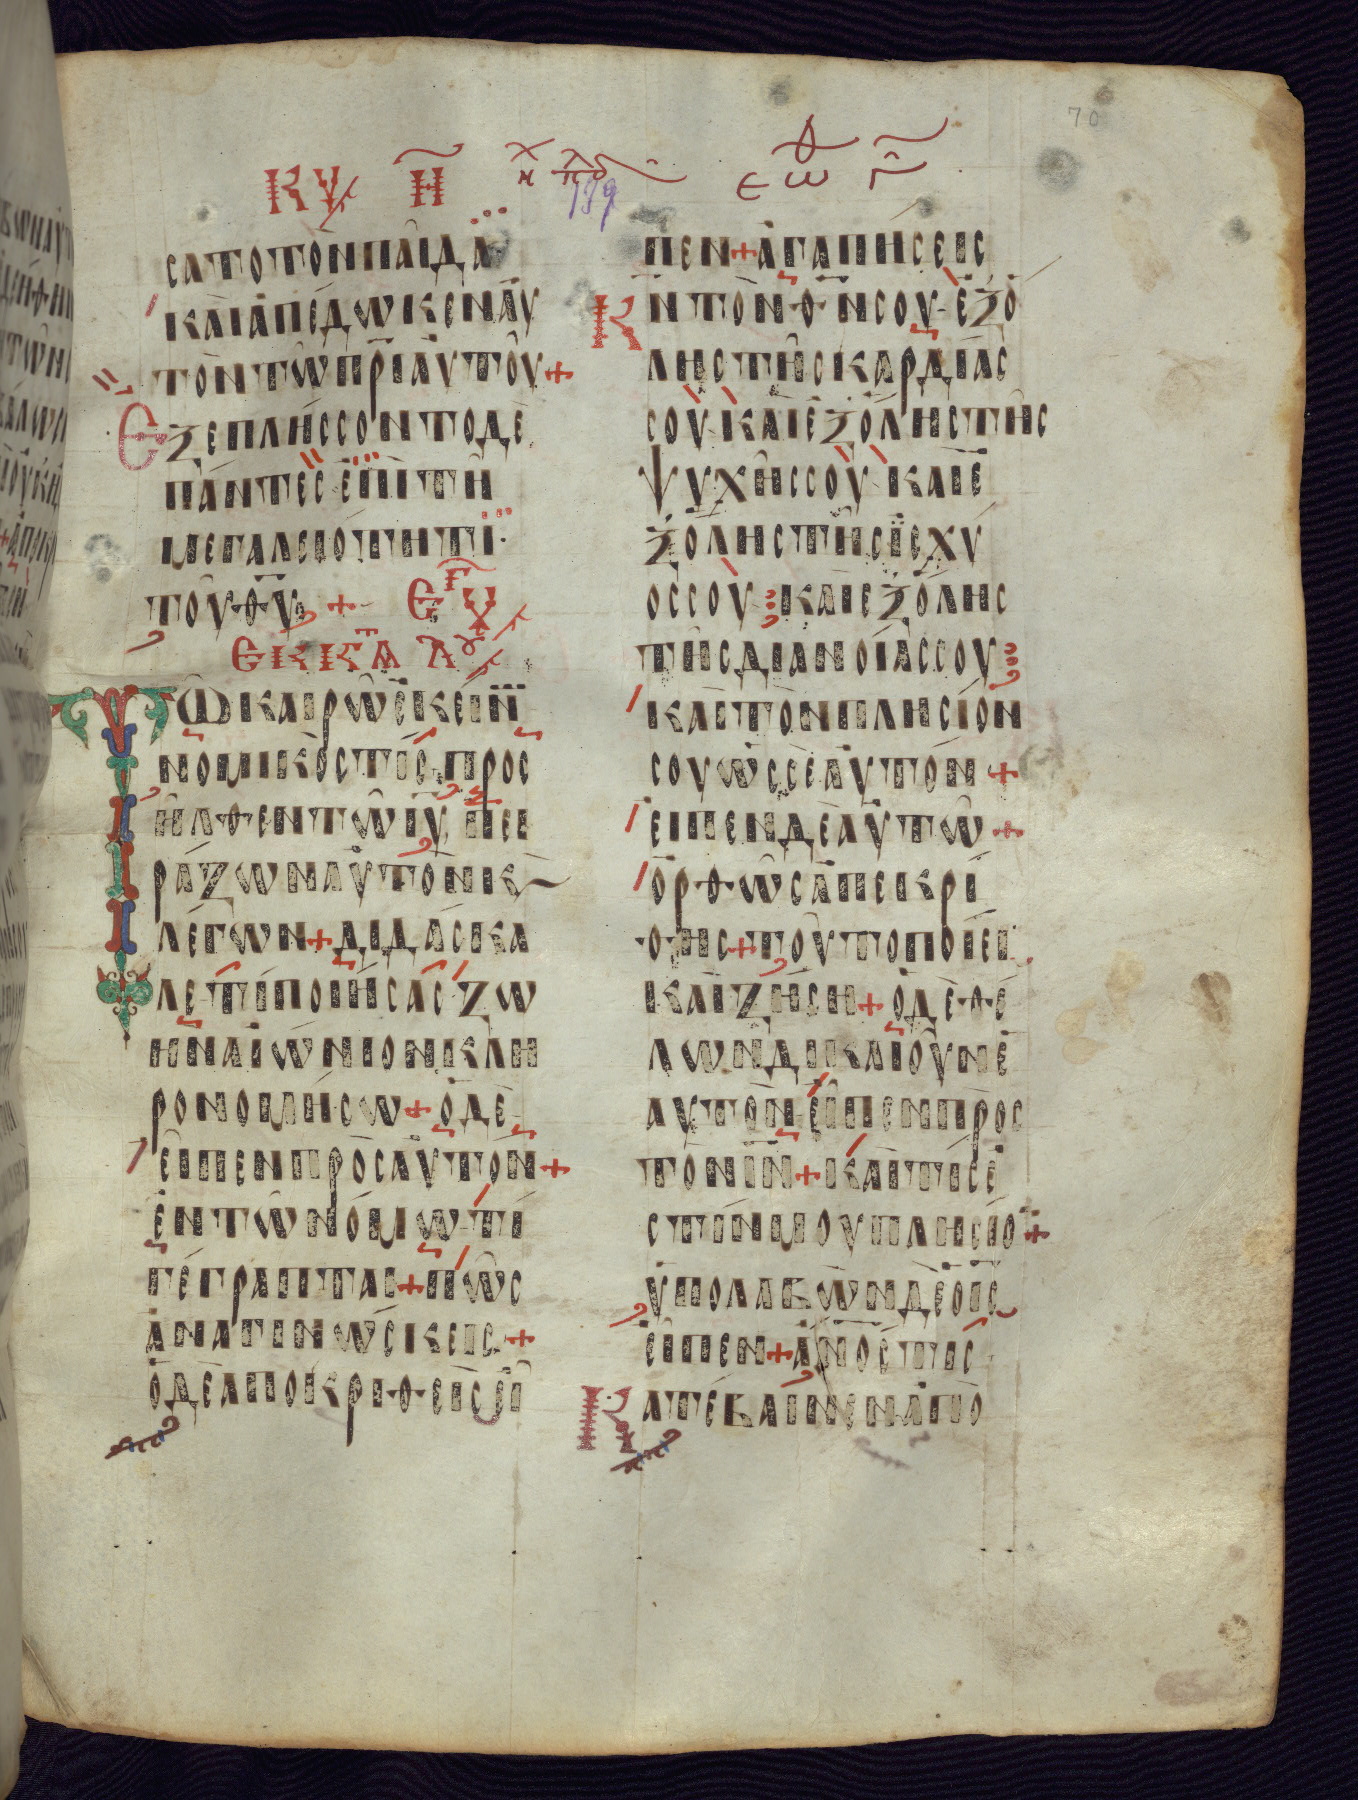 70
ΚΥ Η
139
ϹΑΤΟΤΟΝΠΑΙΔΑ·
ΚΑΙΑΠΕΔΩΚΕΝΑΥ
ΤΟΝΤΩΠΡΙΑΥΤΟΥ+
ΕΞΕΠΛΗϹϹΟΝΤΟΔΕ
ΠΑΝΤΕϹ·ΕΠΙΤΗ
ΜΕΓΑΛΕΙΟΤΗΤΙ·
ΤΟΥΘΥ +
ΕΚ Κ ΤΑ
ΤΩΚΑΙΡΩΕΚΕΙΝ
ΝΟΜΙΚΟϹΤΙϹ·ΠΡΟϹ
ΗΛΘΕΝΤΩΙΥ ΠΕΙ
ΡΑΖΩΝΑΥΤΟΝΚ
ΛΕΓΩΝ+ΔΙΔΑϹΚΑ
ΛΕ·ΤΙΠΟΙΗϹΑϹ·ΖΩ
ΗΝΑΙΩΝΙΟΝΚΛΗ
ΡΟΝΟΜΗϹΩ+ΟΔΕ
ΕΙΠΕΝΠΡΟϹΑΥΤΟΝ+
ΕΝΤΩΝΟΜΩ·ΤΙ
ΓΕΓΡΑΠΤΑΙ+ΠΩϹ
ΑΝΑΓΙΝΩϹΚΕΙϹ+
ΟΔΕΑΠΟΚΡΙΘΕΙϹΕΙ
ΠΕΝ+ΑΓΑΠΗϹΕΙϹ
ΚΝΤΟΝΘΝϹΟΥ·ΕΞΟ
ΛΗϹΤΗϹΚΑΡΔΙΑϹ
ϹΟΥ·ΚΑΙΕΞΟΛΗϹΤΗϹ
ΨΥΧΗϹϹΟΥ·ΚΑΙΕ
ΞΟΛΗϹΤΗϹΙϹΧΥ
ΟϹϹΟΥ ΚΑΙΕΞΟΛΗϹ
ΤΗϹΔΙΑΝΟΙΑϹϹΟΥ
ΚΑΙΤΟΝΠΛΗϹΙΟΝ
ϹΟΥΩϹϹΕΑΥΤΟΝ+
ΕΙΠΕΝΔΕΑΥΤΩ+
ΟΡΘΩϹΑΠΕΚΡΙ
ΘΗϹ+ΤΟΥΤΟΠΟΙΕΙ
ΚΑΙΖΗϹΗ+ΟΔΕΘΕ
ΛΩΝΔΙΚΑΙΟΥΝΕ
ΑΥΤΟΝ·ΕΙΠΕΝΠΡΟϹ
ΤΟΝΙΝ+ΚΑΙΤΙϹΕ
ϹΤΙΝΜΟΥΠΛΗϹΙΟ+
ΥΠΟΛΑΒΩΝΔΕΟΙϹ
ΕΙΠΕΝ+ΑΝΟϹΤΙϹ
ΚΑΤΕΒΑΙΝΕΝΑΠΟ